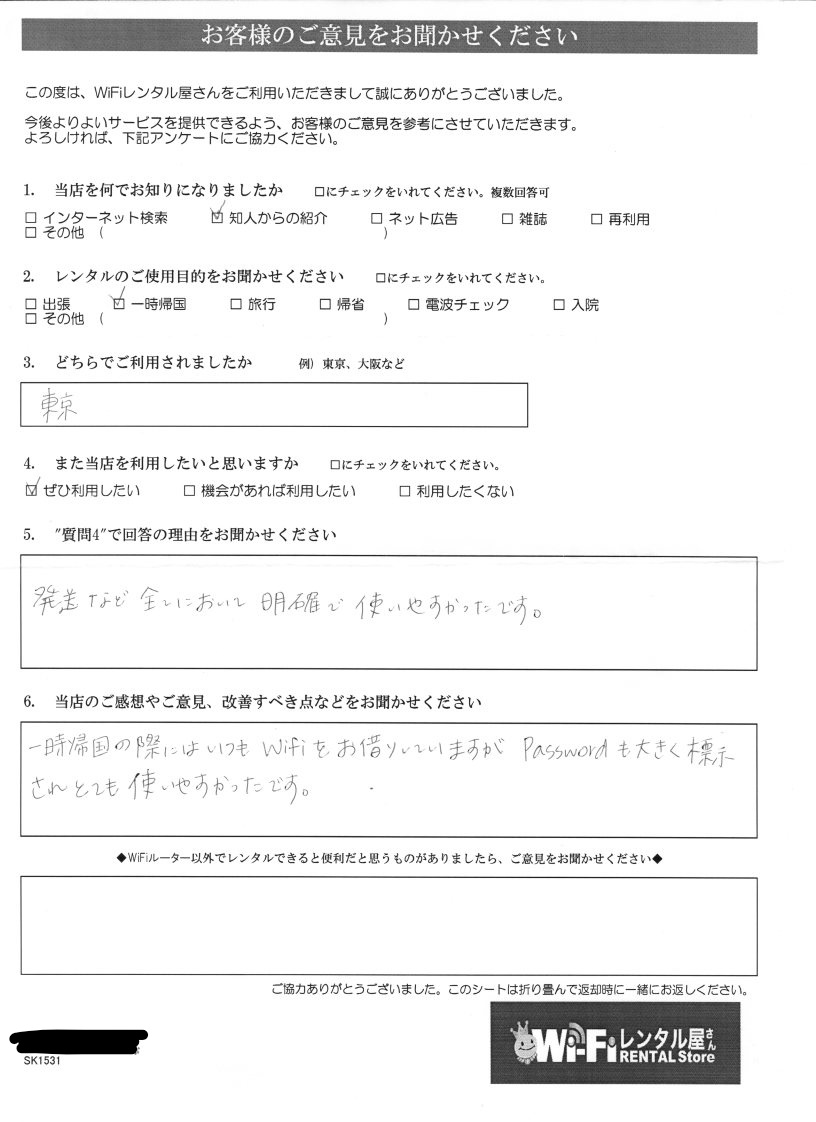 お客様のご意見をお聞かせください
この度は、WiFiレンタル屋さんをご利用いただきまして誠にありがとうございました。
今後よりよいサービスを提供できるよう、お客様のご意見を参考にさせていただきます。
よろしければ、下記アンケートにご協力ください。
1. 当店を何でお知りになりましたか □にチェックをいれてください。複数回答可
□ インターネット検索 ☑ 知人からの紹介 □ ネット広告 □ 雑誌 □ 再利用
□ その他 ( )
2. レンタルのご使用目的をお聞かせください □にチェックをいれてください。
□ 出張 ☑ 一時帰国 □ 旅行 □ 帰省 □ 電波チェック □ 入院
□ その他 ( )
3. どちらでご利用されましたか 例) 東京、大阪など
東京
4. また当店を利用したいと思いますか □にチェックをいれてください。
☑ ぜひ利用したい □ 機会があれば利用したい □ 利用したくない
5. "質問4"で回答の理由をお聞かせください
発送など全てにおいて明確で使いやすかったです。
6. 当店のご感想やご意見、改善すべき点などをお聞かせください
一時帰国の際にはいつもWifiをお借りしていますが Passwordも大きく標示
されとても使いやすかったです。
◆WiFiルーター以外でレンタルできると便利だと思うものがありましたら、ご意見をお聞かせください◆
ご協力ありがとうございました。このシートは折り畳んで返却時に一緒にお返しください。
SK1531
Wi-Fiレンタル屋さん
RENTAL Store